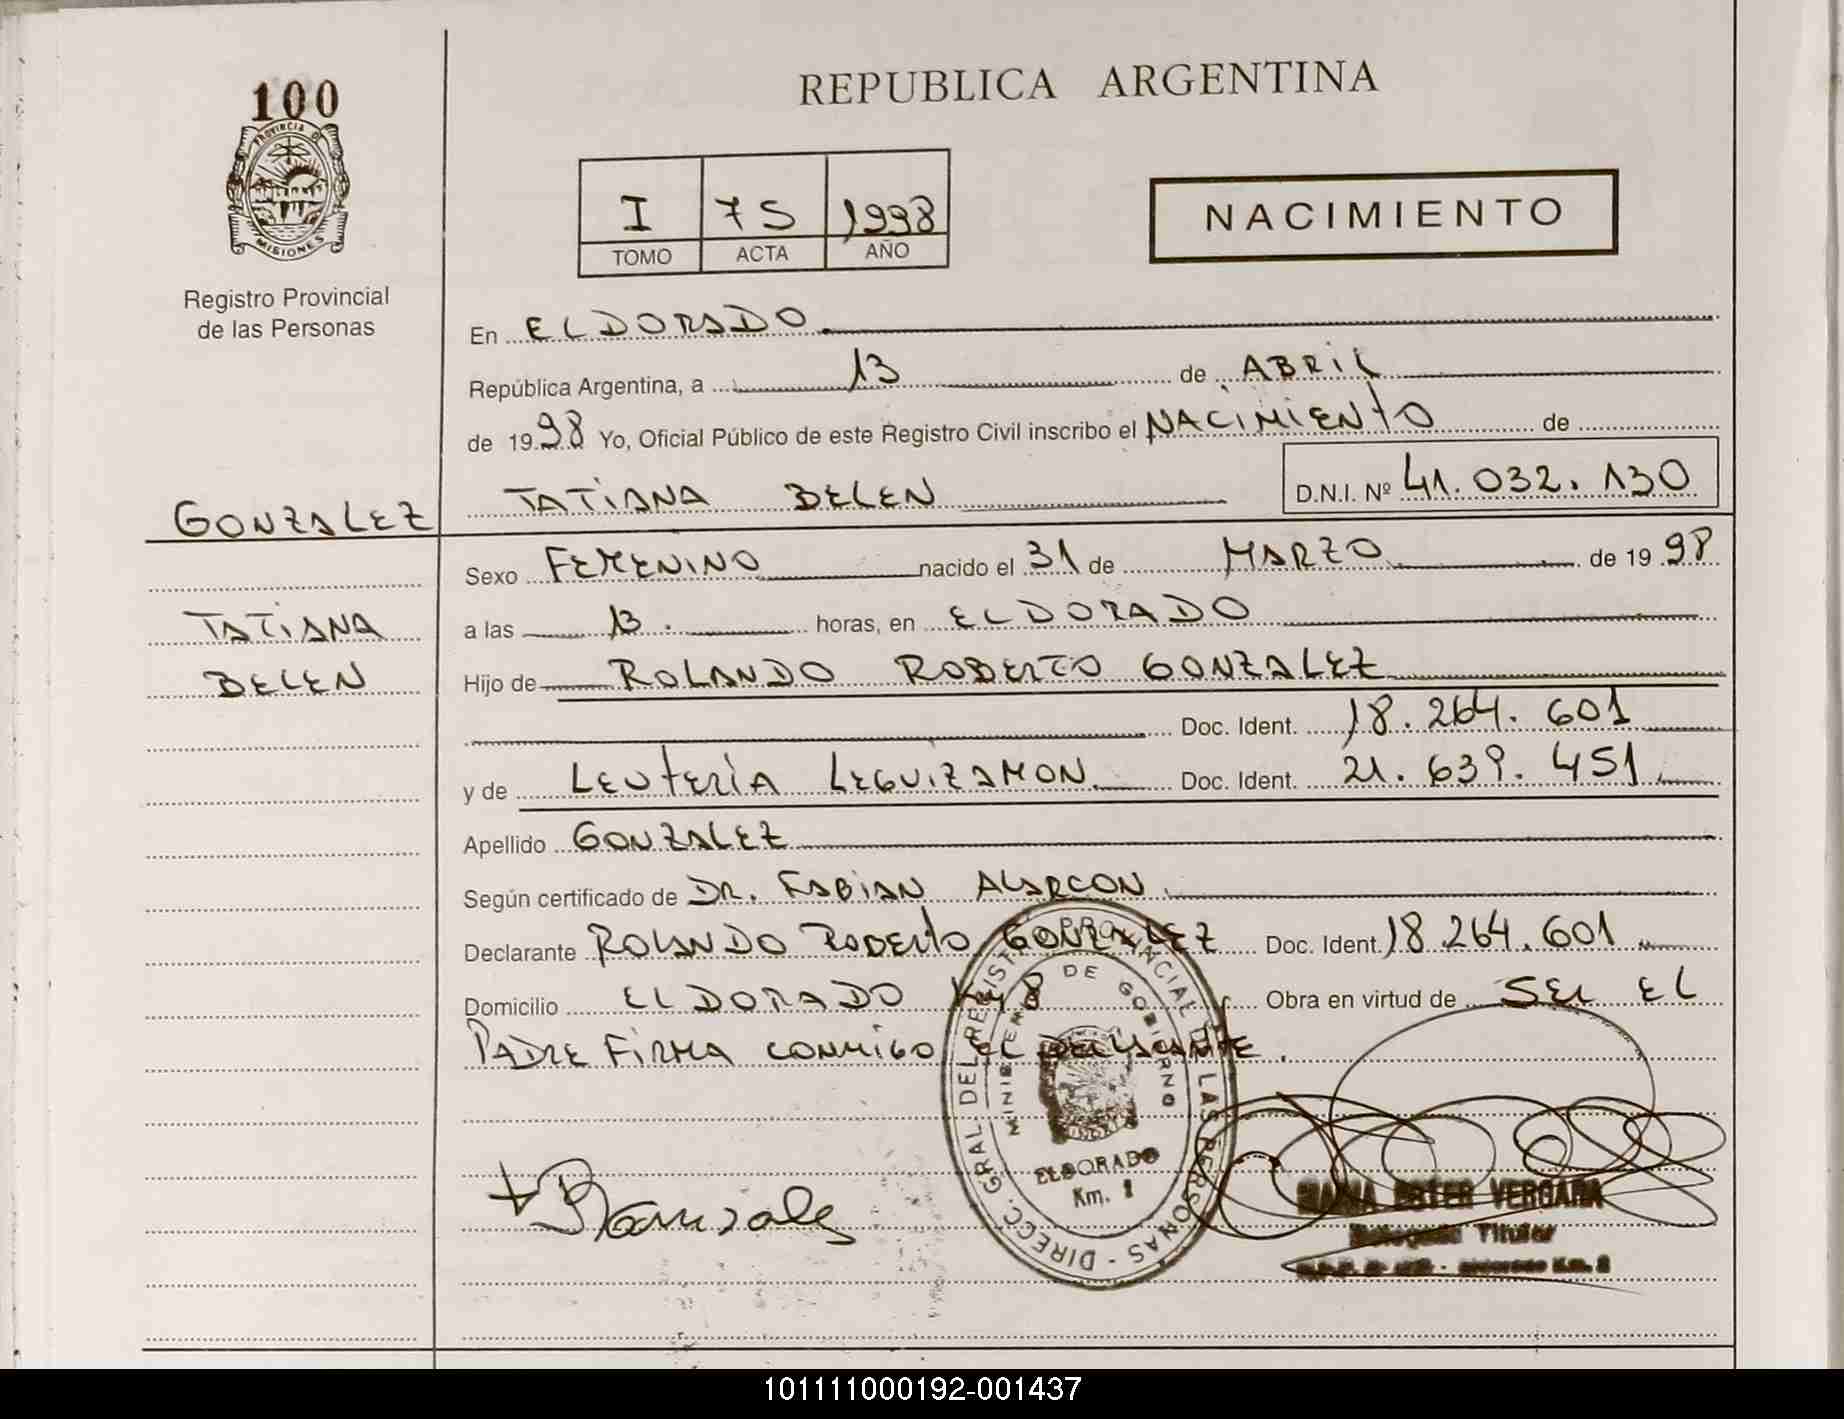 100
PROVINCIA D
MISIONES
Registro Provincial
de las Personas
REPUBLICA ARGENTINA
I 75 1998
TOMO ACTA AÑO
NACIMIENTO
En ELDORADO
República Argentina, a 13 de ABRIL
de 1998 Yo, Oficial Público de este Registro Civil inscribo el NACIMIENTO de
GONZALEZ TATIANA BELEN D.N.I. Nº 41.032.130
Sexo FEMENINO nacido el 31 de MARZO de 1998
TATIANA a las 13. horas, en ELDORADO
BELEN Hijo de ROLANDO ROBERTO GONZALEZ
Doc. Ident. 18.264.601
y de LEUTERIA LEGUIZAMON Doc. Ident. 21.639.451
Apellido GONZALEZ
Según certificado de DR. FABIAN ALARCON
Declarante ROLANDO ROBERTO GONZALEZ Doc. Ident. 18.264.601
Domicilio ELDORADO Km 8 Obra en virtud de SER EL
PADRE FIRMA CONMIGO EL DECLARANTE.
DIRECC. GRAL. DEL REGIST. PROVINCIAL DE LAS PERSONAS -
MINISTERIO DE GOBIERNO
ELDORADO
Km.
ESTER VERGARA
Delegada Titular
101111000192-001437